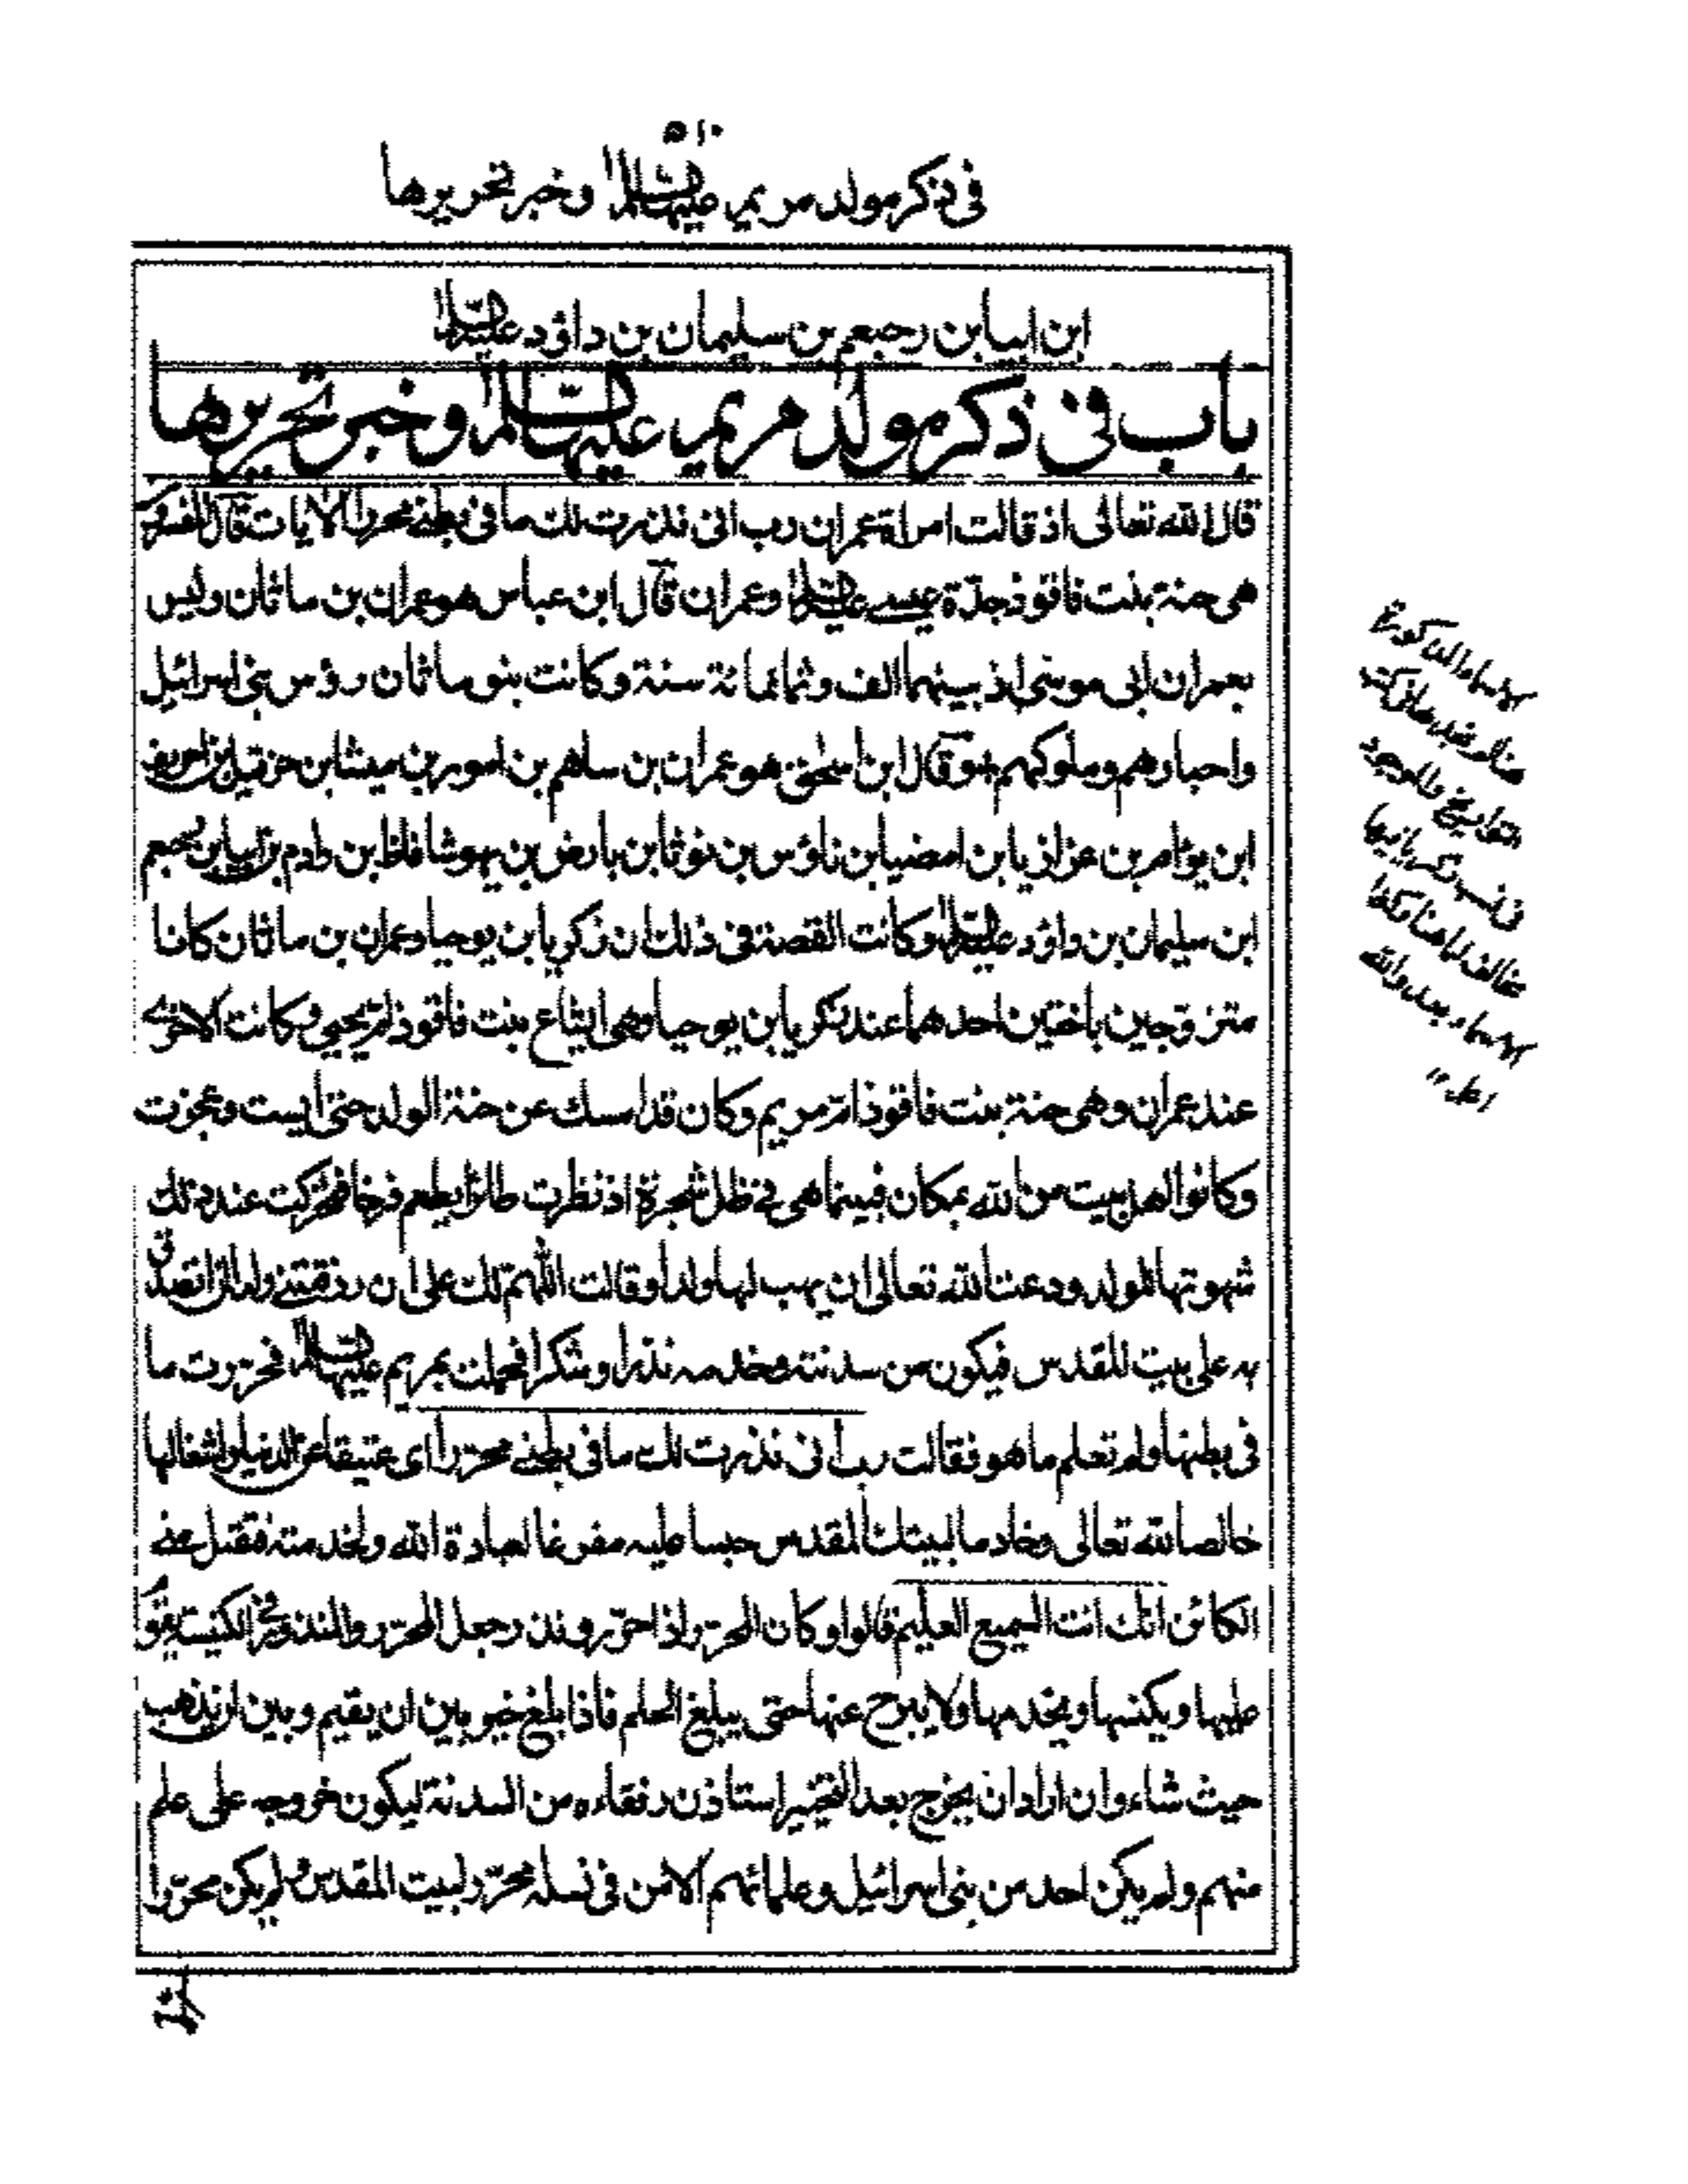 ٥١٠
فى ذكر مولد مريم عليها السلام وخبر تحريرها
ابن ابيا بن رحبعم بن سليمان بن داؤد عليه السلام
باب فى ذكر مولد مريم عليها السلام وخبر تحريرها
قال الله تعالى اذ قالت امراة عمران رب انى نذرت لك ما فى بطنى محررا الايات قال المفسرون
هى حنة بنت فاقوذ جدة عيسى عليه السلام وعمران قال ابن عباس هو عمران بن ماثان وليس
بعمران ابى موسى اذ بينهما الف وثمانمائة سنة وكانت بنو ماثان رؤس بنى اسرائيل
واحبارهم وملوكهم وقال ابن اسحٰق هو عمران بن ساهم بن امور بن ميشا بن حزقيل بن احريف
ابن يوام بن عزازيا بن امضيا بن ناؤس بن نوثا بن بارض بن يهوشافاظ بن رادم بن ابيا بن رجعم
ابن سليمان بن داؤد عليه السلام وكانت القصة فى ذلك ان زكريا بن يوحيا وعمران بن ماثان كانا
متزوجين باختين احدهما عند زكريا بن يوحيا وهى ايشاع بنت فاقوذ ام يحيى وكانت الاخرى
عند عمران وهى حنة بنت فاقوذ ام مريم وكان قد امسك عن حنة الولد حتى ايست وعجزت
وكانوا اهل بيت من الله بمكان فبينما هى فى ظل شجرة اذ نظرت طائرا يطعم فرخا فتحركت عند ذلك
شهوتها للولد ودعت الله تعالى ان يهب لها ولدا وقالت اللهم لك على ان رزقتنى ولدا ان اتصدق
به على بيت المقدس فيكون من سدنته وخدمه نذرا وشكرا فحملت بمريم عليها السلام فحررت ما
فى بطنها ولم تعلم ما هو فقالت رب انى نذرت لك ما فى بطنى محررا اى عتيقا عن الدنيا واشغالها
خالصا لله تعالى وخادما لبيتك المقدس حبسا عليه مفرغا لعبادة الله ولخدمته فتقبل منى
الكائن انك انت السميع العليم قالوا وكان المحرر اذا حرر ونذر جعل المحرر والمنذور فى الكنيسة يقوم
عليها ويكنسها ويخدمها ولا يبرح عنها حتى يبلغ الحلم فاذا بلغ خير بين ان يقيم وبين ان يذهب
حيث شاء وان اراد ان يخرج بعد التخيير استاذن رفقاءه من السدنة ليكون خروجه على علم
منهم ولم يكن احد من بنى اسرائيل وعلمائهم الا من فى نسله محرر لبيت المقدس ولم يكن محررا
الاسماء المذكورة
التواريخ والموجود
مخالف لما هنا وكذا
الاسماء بعد والله
اعلم ١٢